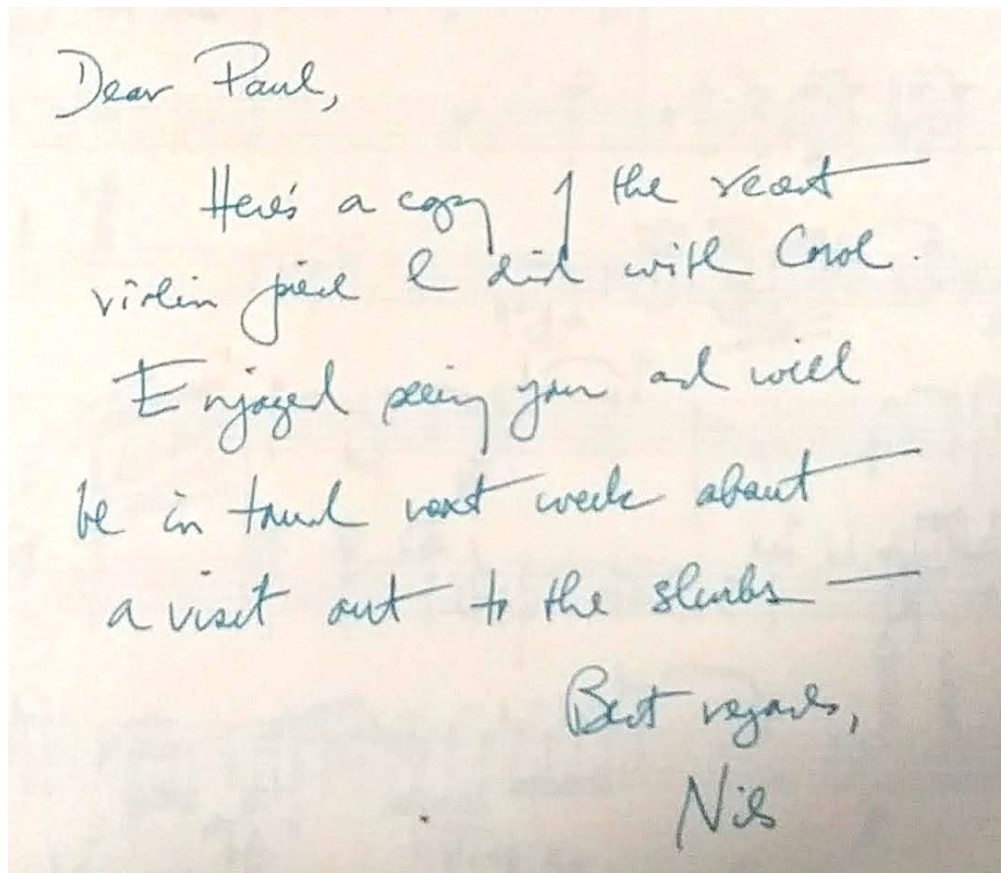 Dear Paul,
Here's a copy of the recent
violin piece I did with Carol.
Enjoyed seeing you and will
be in touch next week about
a visit out to the slurbs —
Best regards,
Nils